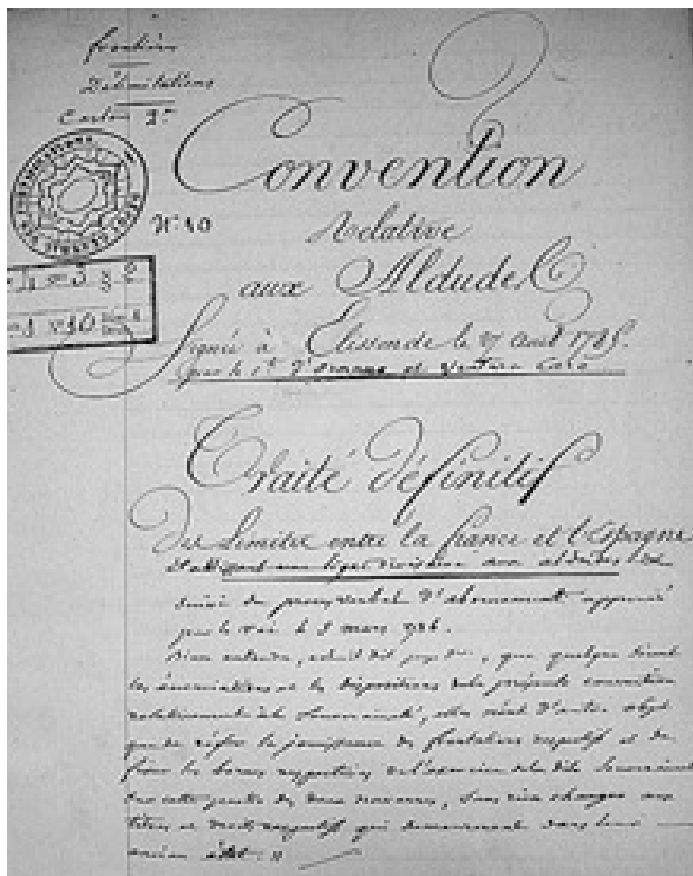 frontière
Délimitations
Carton 2e
N° 10
Convention
Relative
aux Aldudes
Signée à Elissonde le 27 Août 1785.
par le Cte D'Ornano et Ventura Caro
Traité définitif
Des Limites entre la france et l'Espagne
Etablissant une ligne divisoire aux aldudes
suivi du procès verbal D'abornement approuvé
par le roi le 5 mars
Bien entendu, que quelque soient
les énonciations et les dispositions de la présente convention
relativement à la Souveraineté, elles n'ont D'autre objet
que de régler la jouissance des frontaliers respectifs et de
fixer les bornes respectives de l'exercice de la dite Souveraineté
Dans cette partie des deux navarres, Sans rien changer aux
titres et droits respectifs qui demeureront dans leur
ancien état